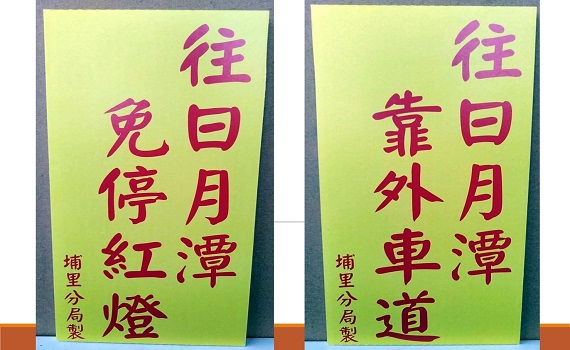 往日月潭
免停紅燈
埔里分局製
往日月潭
靠外車道
埔里分局製